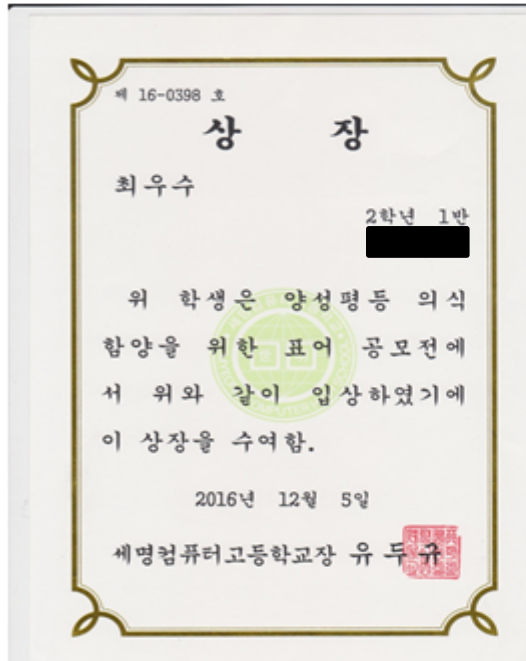 제 16-0398 호
상 장
최우수
2학년 1반
위 학생은 양성평등 의식
함양을 위한 표어 공모전에
서 위와 같이 입상하였기에
이 상장을 수여함.
2016년 12월 5일
세명컴퓨터고등학교장 유두규